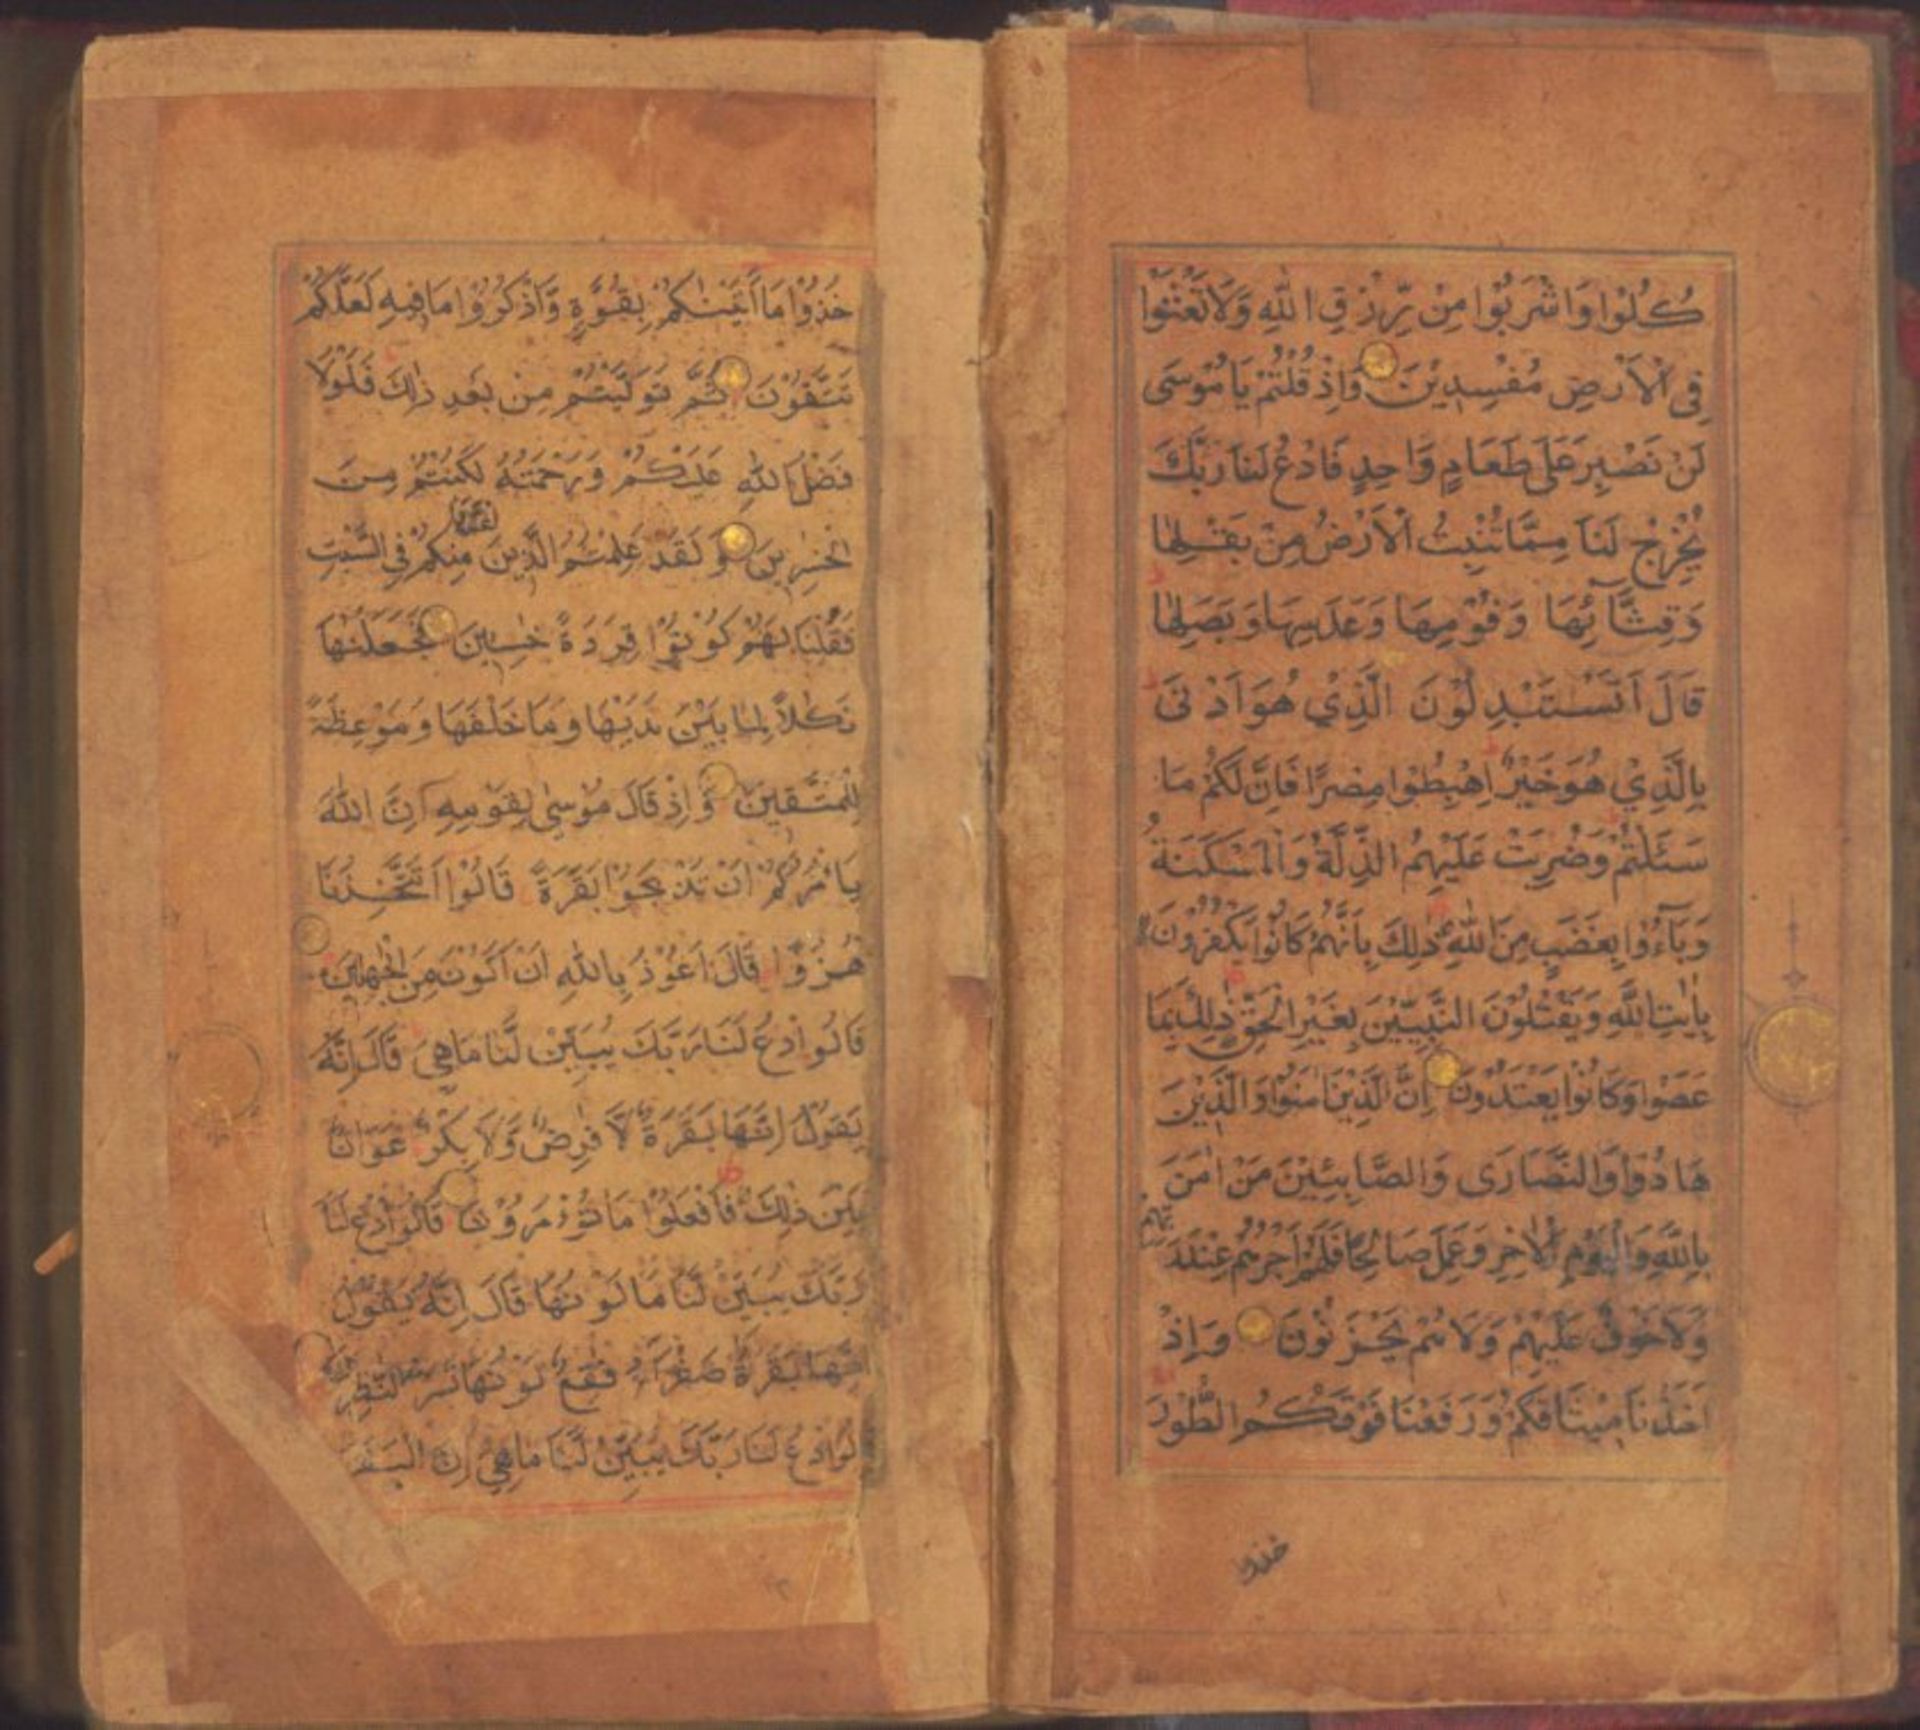 كُلُوْا وَاشْرَبُوْا مِنْ رِّزْقِ اللّٰهِ وَلَا تَعْثَوْا
فِي الْاَرْضِ مُفْسِدِيْنَ وَاِذْ قُلْتُمْ يَا مُوْسَى
لَنْ نَصْبِرَ عَلَى طَعَامٍ وَّاحِدٍ فَادْعُ لَنَا رَبَّكَ
يُخْرِجْ لَنَا مِمَّا تُنْبِتُ الْاَرْضُ مِنْ بَقْلِهَا
وَقِثَّآئِهَا وَفُوْمِهَا وَعَدَسِهَا وَبَصَلِهَا
قَالَ اَتَسْتَبْدِلُوْنَ الَّذِيْ هُوَ اَدْنٰى
بِالَّذِيْ هُوَ خَيْرٌ اِهْبِطُوْا مِصْرًا فَاِنَّ لَكُمْ مَا
سَئَلْتُمْ وَضُرِبَتْ عَلَيْهِمُ الذِّلَّةُ وَالْمَسْكَنَةُ
وَبَآءُوْا بِغَضَبٍ مِنَ اللّٰهِ ذٰلِكَ بِاَنَّهُمْ كَانُوْا يَكْفُرُوْنَ
بِاٰيٰتِ اللّٰهِ وَيَقْتُلُوْنَ النَّبِيّيْنَ بِغَيْرِ الْحَقِّ ذٰلِكَ بِمَا
عَصَوْا وَكَانُوْا يَعْتَدُوْنَ اِنَّ الَّذِيْنَ اٰمَنُوْا وَالَّذِيْنَ
هَادُوْا وَالنَّصَارٰى وَالصَّابِئِيْنَ مَنْ اٰمَنَ
بِاللّٰهِ وَالْيَوْمِ الْاٰخِرِ وَعَمِلَ صَالِحًا فَلَهُمْ اَجْرُهُمْ عِنْدَ
رَبِّهِمْ
وَلَا خَوْفٌ عَلَيْهِمْ وَلَا هُمْ يَحْزَنُوْنَ وَاِذْ
اَخَذْنَا مِيْثَاقَكُمْ وَرَفَعْنَا فَوْقَكُمُ الطُّوْرَ
خذوا
خُذُوْا مَا اٰتَيْنٰكُمْ بِقُوَّةٍ وَّاذْكُرُوْا مَا فِيْهِ لَعَلَّكُمْ
تَتَّقُوْنَ ثُمَّ تَوَلَّيْتُمْ مِنْ بَعْدِ ذٰلِكَ فَلَوْلَا
فَضْلُ اللّٰهِ عَلَيْكُمْ وَرَحْمَتُهُ لَكُنْتُمْ مِنَ
الْخٰسِرِيْنَ وَلَقَدْ عَلِمْتُمُ الَّذِيْنَ اعْتَدَوْا مِنْكُمْ فِي السَّبْتِ
فَقُلْنَا لَهُمْ كُوْنُوْا قِرَدَةً خٰسِئِيْنَ فَجَعَلْنٰهَا
نَكَالًا لِمَا بَيْنَ يَدَيْهَا وَمَا خَلْفَهَا وَمَوْعِظَةً
لِلْمُتَّقِيْنَ وَاِذْ قَالَ مُوْسٰى لِقَوْمِهِ اِنَّ اللّٰهَ
يَاْمُرُكُمْ اَنْ تَذْبَحُوْا بَقَرَةً قَالُوْا اَتَتَّخِذُنَا
هُزُوًا قَالَ اَعُوْذُ بِاللّٰهِ اَنْ اَكُوْنَ مِنَ الْجٰهِلِيْنَ
قَالُوا ادْعُ لَنَا رَبَّكَ يُبَيِّنْ لَّنَا مَا هِيَ قَالَ اِنَّهُ
يَقُوْلُ اِنَّهَا بَقَرَةٌ لَّا فَارِضٌ وَّلَا بِكْرٌ عَوَانٌ
بَيْنَ ذٰلِكَ فَافْعَلُوْا مَا تُؤْمَرُوْنَ قَالُوا ادْعُ لَنَا
رَبَّكَ يُبَيِّنْ لَّنَا مَا لَوْنُهَا قَالَ اِنَّهُ يَقُوْلُ
اِنَّهَا بَقَرَةٌ صَفْرَآءُ فَاقِعٌ لَوْنُهَا تَسُرُّ النّٰظِرِيْنَ
لُوا ادْعُ لَنَا رَبَّكَ يُبَيِّنْ لَّنَا مَا هِيَ اِنَّ الْبَقَرَ